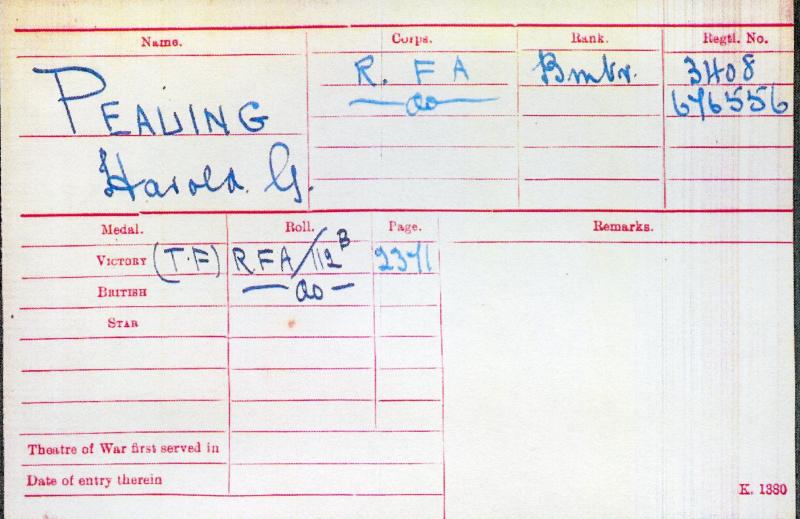 Name. Corps. Rank. Regtl. No.
PEALING R. F A Bmbr. 3408
do 676556
Harold. G.
Medal. Roll. Page. Remarks.
VICTORY (T.F) RFA/112 B
BRITISH do
STAR
Theatre of War first served in
Date of entry therein
K. 1380